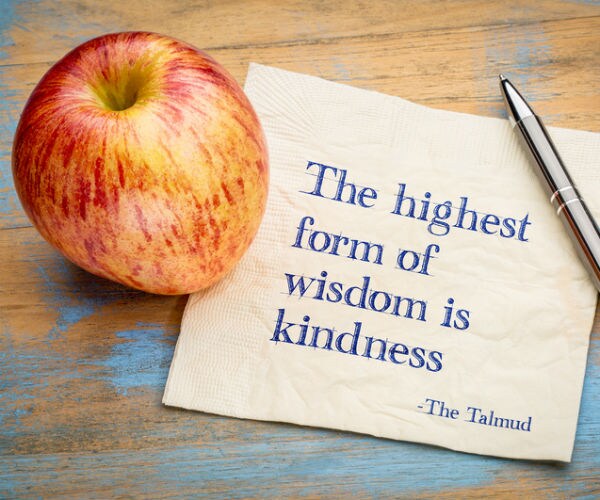 The highest
form of
wisdom is
kindness
-The Talmud